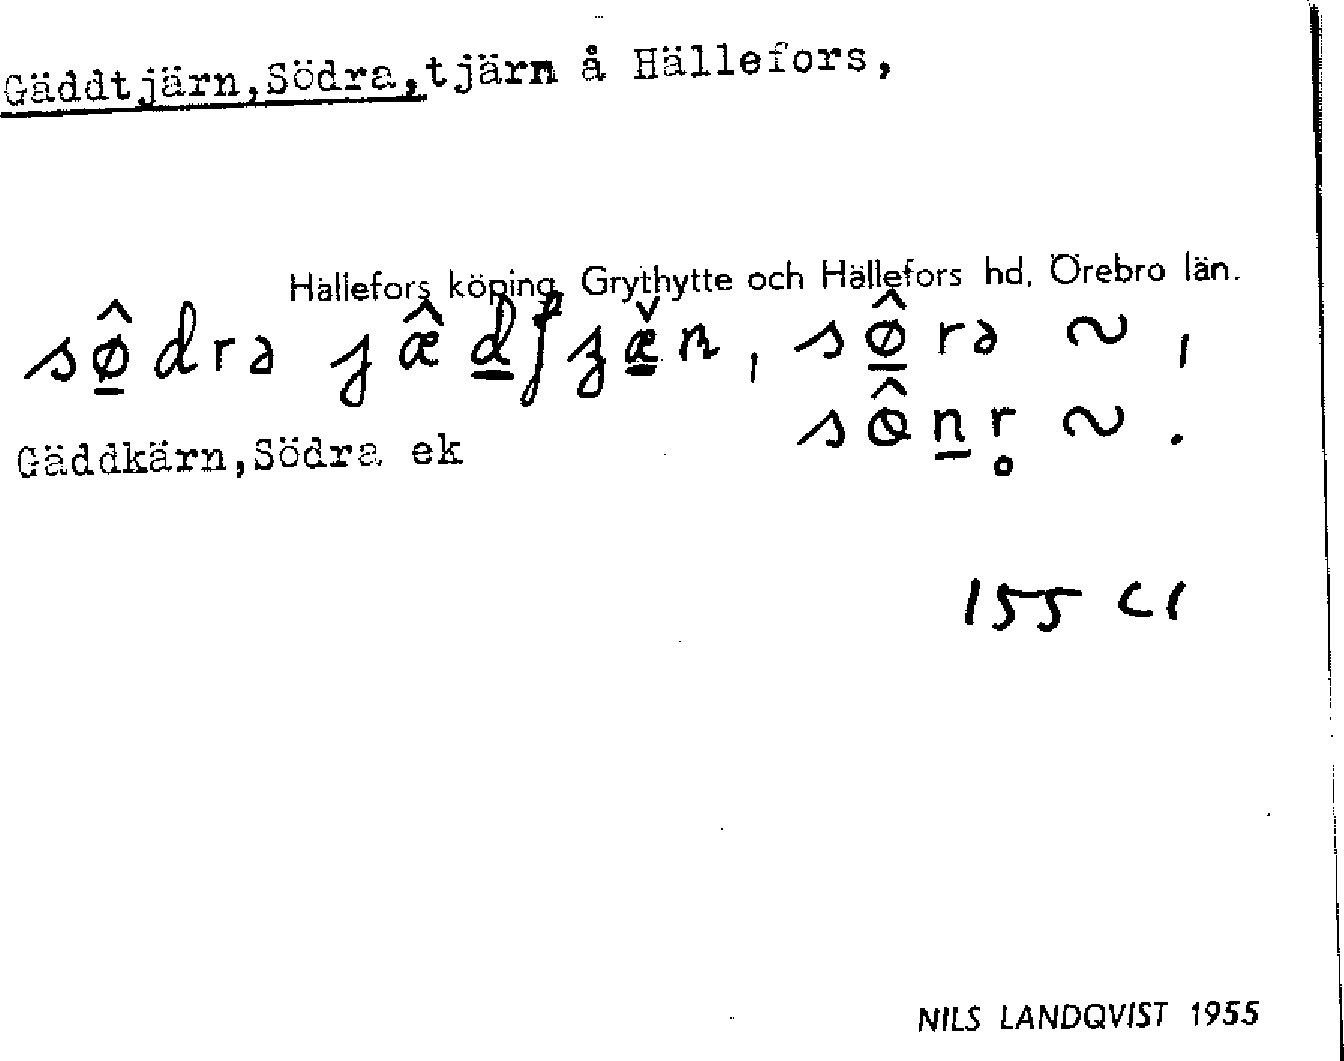 Gäddtjärn,Södra,tjärn å Hällefors,
Hällefors köping, Grythytte och Hällefors hd, Örebro län.
sø̂dra jæ̂d, sø̂ra ~,
sôn̲r̥ ~.
Gäddkärn,Södra ek
155 C1
NILS LANDQVIST 1955